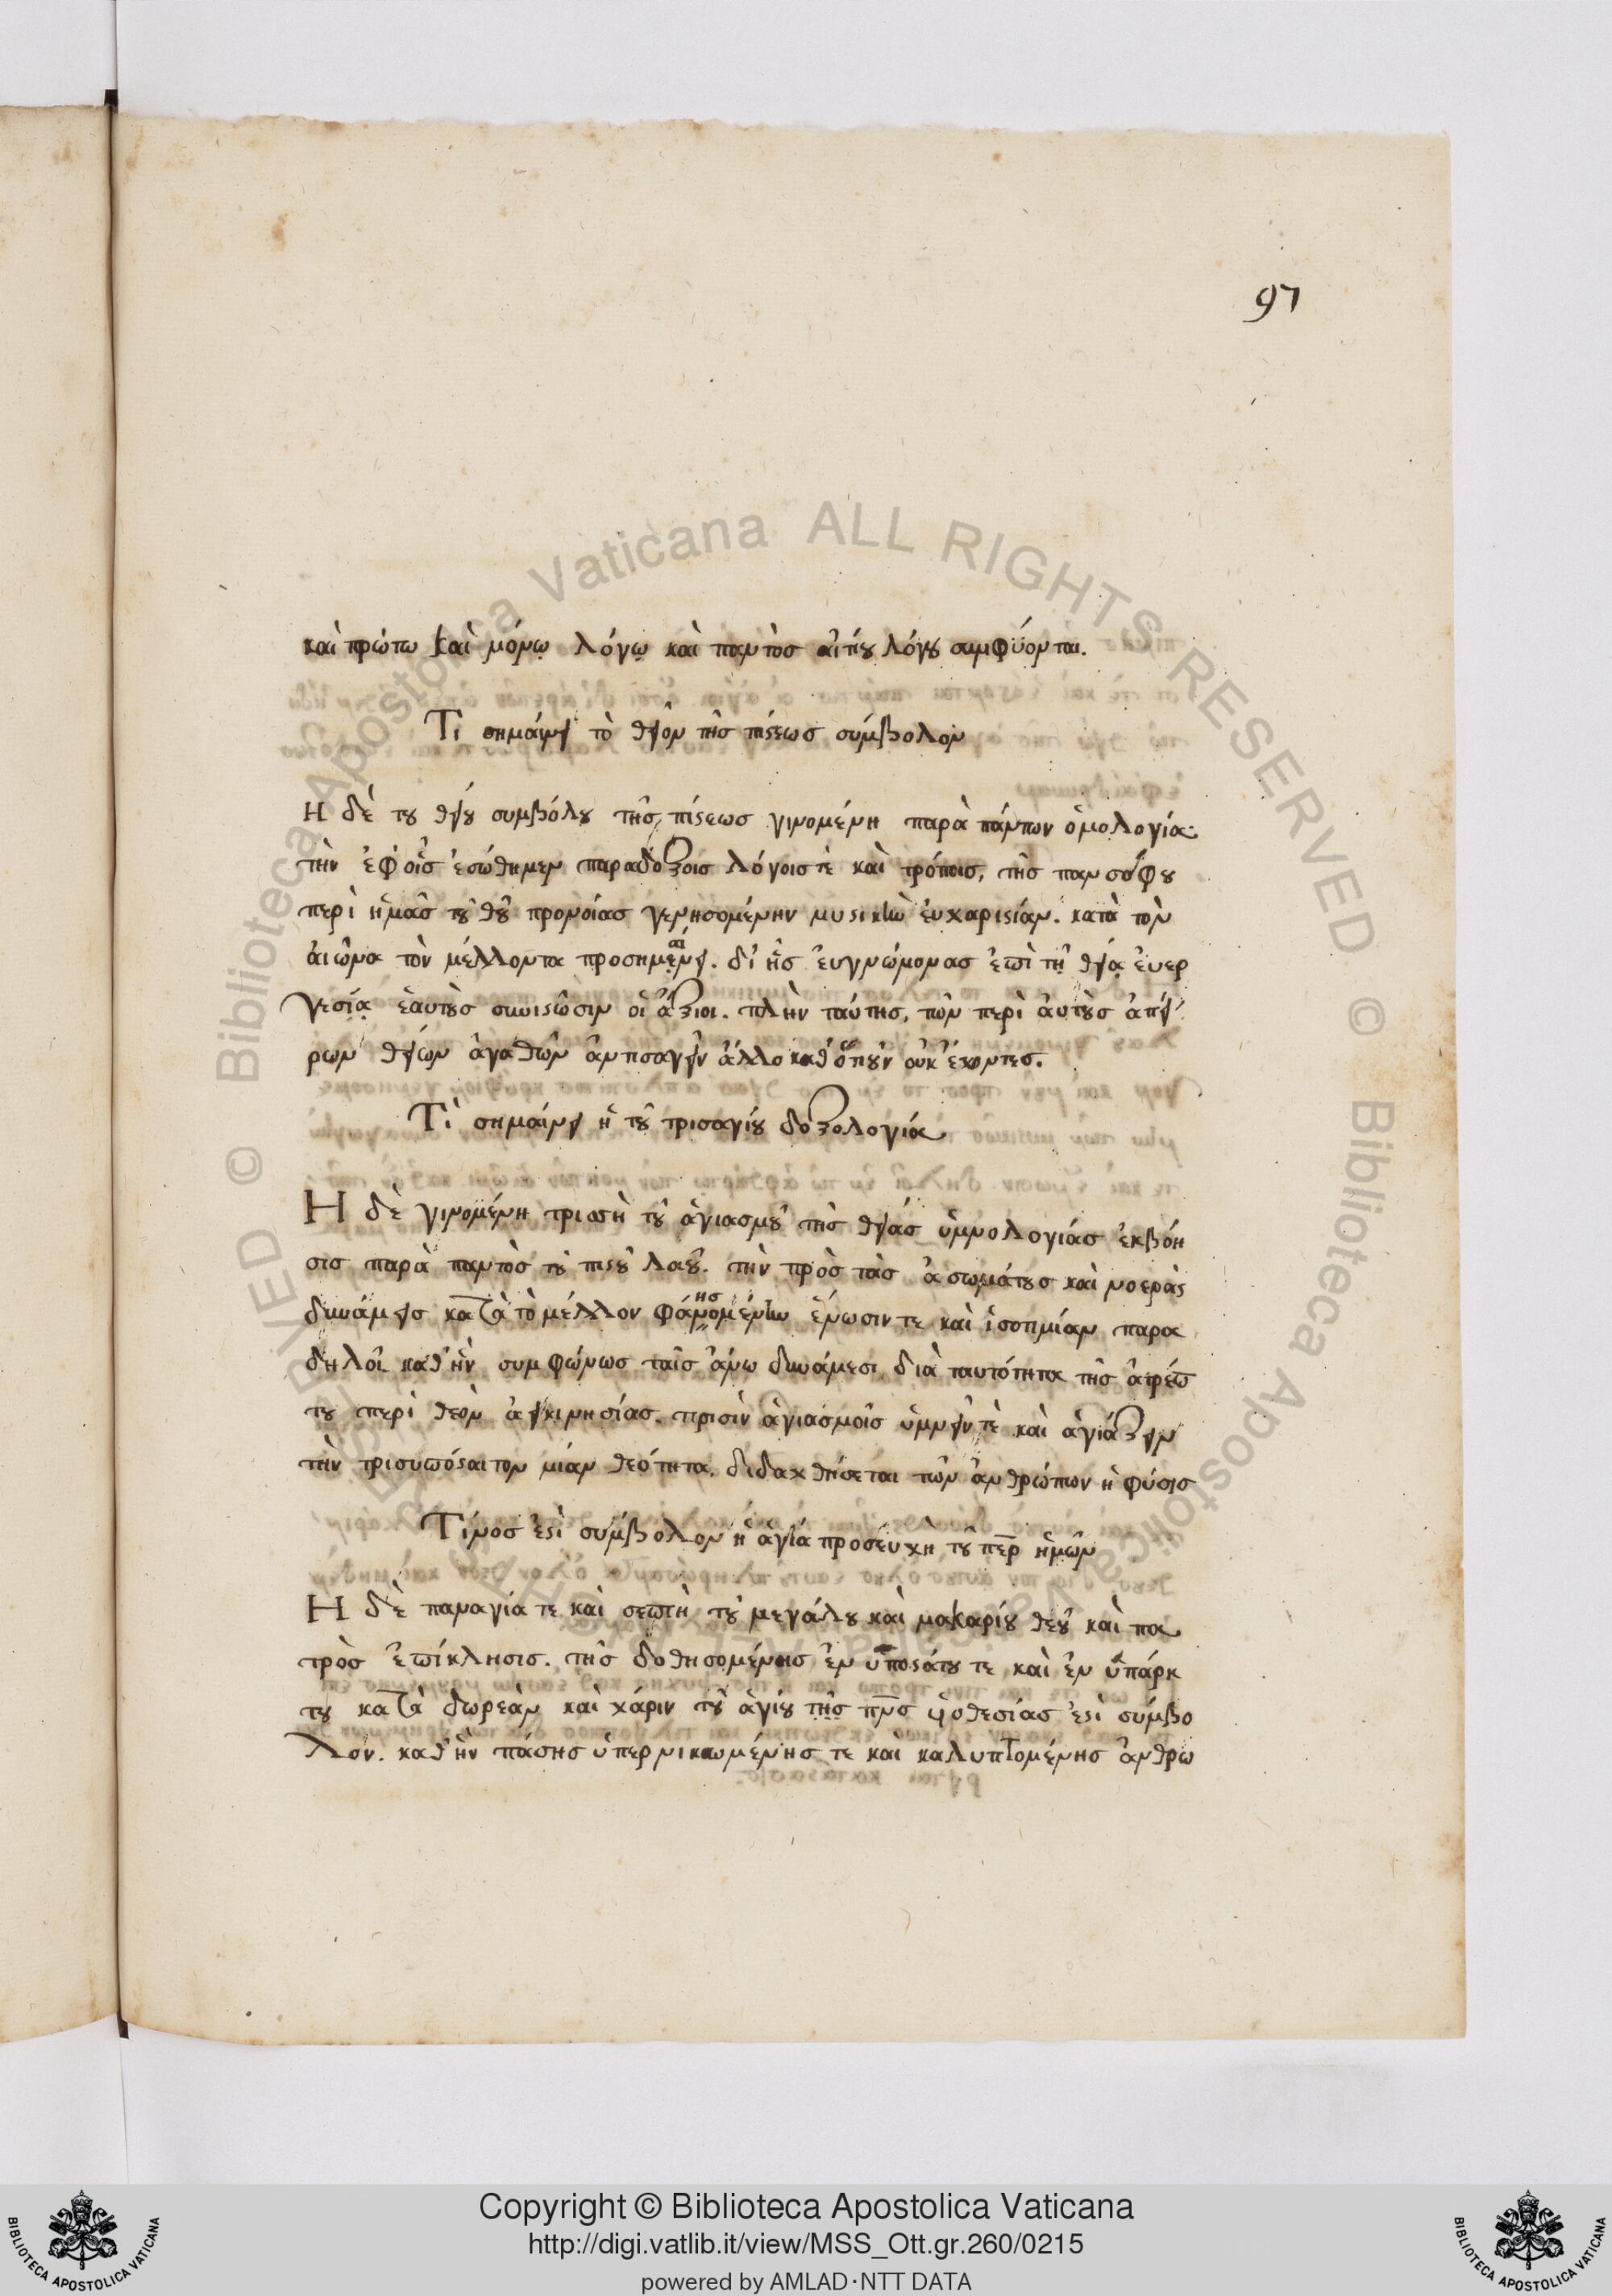 97
καὶ πρώτω καὶ μόνῳ λόγῳ καὶ παντὸσ αἰτίου λόγου συμφύονται.
Τί σημαίνει τὸ θεῖον τῆσ πίστεωσ σύμβολον
Η δὲ του θείου συμβόλου τῆσ πίστεωσ γινομένη παρὰ πάντων ὁμολογία
τὴν ἐφ οἷσ ἐσώθημεν παραδόξοισ λόγοισ τὲ καὶ τρόποισ, τῆσ πανσόφου
περὶ ἡμᾶσ τοῦ θεοῦ προνοίασ γενησομένην μυστικὴν ἐυχαριστίαν. κατὰ τὸν
ἀιῶνα τὸν μέλλοντα προσημαίνει. δι ἧσ ἐυγνώμονασ ἐπὶ τῇ θείᾳ ἐυερ
γεσίᾳ ἑαυτοὺσ συνιστῶσιν οἱ ἄξιοι. πλὴν ταύτησ, τῶν περὶ ἀυτοὺσ ἀπεί
ρων θείων ἀγαθῶν ἀντισαγεῖν ἄλλο καθ ὅτιοῦν οὐκ ἔχοντεσ.
Τί σημαίνει ἡ τοῦ τρισαγίου δοξολογία
Η δὲ γινομένη τρισσὴ τοῦ ἁγιασμοῦ τῆσ θείάσ ὑμνολογιάσ ἐκβόη
σισ παρὰ παντὸσ τοῦ πιστοῦ λαοῦ. τὴν πρὸσ τὰσ ἀσωμάτουσ καὶ νοερὰς
δυνάμεισ κατὰ τὸ μέλλον φανησομένην ἕνωσιν τε καὶ ἰσοτιμίαν παρα
δηλοῖ καθ ἣν συμφώνωσ ταῖσ ἄνω δυνάμεσι διὰ ταυτότητα τῆσ ἀτρέπ
του περὶ θεὸν ἀεικινησίασ. τρισὶν ἁγιασμοῖσ ὑμνεῖν τὲ καὶ ἁγιάζειν
τὴν τρισυπόσταιτον μίαν θεότητα. διδαχθήσεται τῶν ἀνθρώπων ἡ φύσισ
Τίνοσ ἐστὶ σύμβολον ἡ ἁγία προσευχὴ του περ ἡμῶν
Η δὲ παναγία τε καὶ σεπτὴ τοῦ μεγάλου καὶ μακαρίου θεοῦ καὶ πα
τρὸσ ἐπίκλησισ. τῆσ δοθησομένησ ἐν ὑποστάτου τε καὶ ἐν ὑπάρκ
του κατὰ δωρεὰν καὶ χάριν τοῦ ἁγίου τῆς πνσ ὑοθεσίασ ἐστὶ σύμβο
λον. καθ ἣν πάσησ ὑπερνικωμένησ τε καὶ καλυπτομένησ ἀνθρω
© Biblioteca Apostolica Vaticana ALL RIGHTS RESERVED
Copyright © Biblioteca Apostolica Vaticana
http://digi.vatlib.it/view/MSS_Ott.gr.260/0215
powered by AMLAD·NTT DATA
BIBLIOTECA APOSTOLICA VATICANA
BIBLIOTECA APOSTOLICA VATICANA